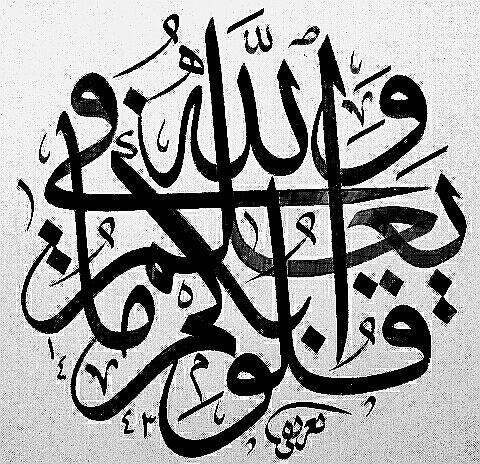 والله يعلم ما في قلوبكم
١٤
٤٣